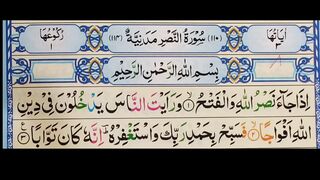 اٰيَاتُهَا ٣ (١١٠) سُوْرَةُ النَّصْرِ مَدَنِيَّةٌ (١١٤) رُكُوْعُهَا ١
بِسْمِ اللّٰهِ الرَّحْمٰنِ الرَّحِيْمِ
اِذَا جَآءَ نَصْرُ اللّٰهِ وَالْفَتْحُ ۙ﴿١﴾ وَرَاَيْتَ النَّاسَ يَدْخُلُوْنَ فِيْ دِيْنِ
اللّٰهِ اَفْوَاجًا ۙ﴿٢﴾ فَسَبِّحْ بِحَمْدِ رَبِّكَ وَاسْتَغْفِرْهُ ؕ اِنَّهٗ كَانَ تَوَّابًا ﴿٣﴾